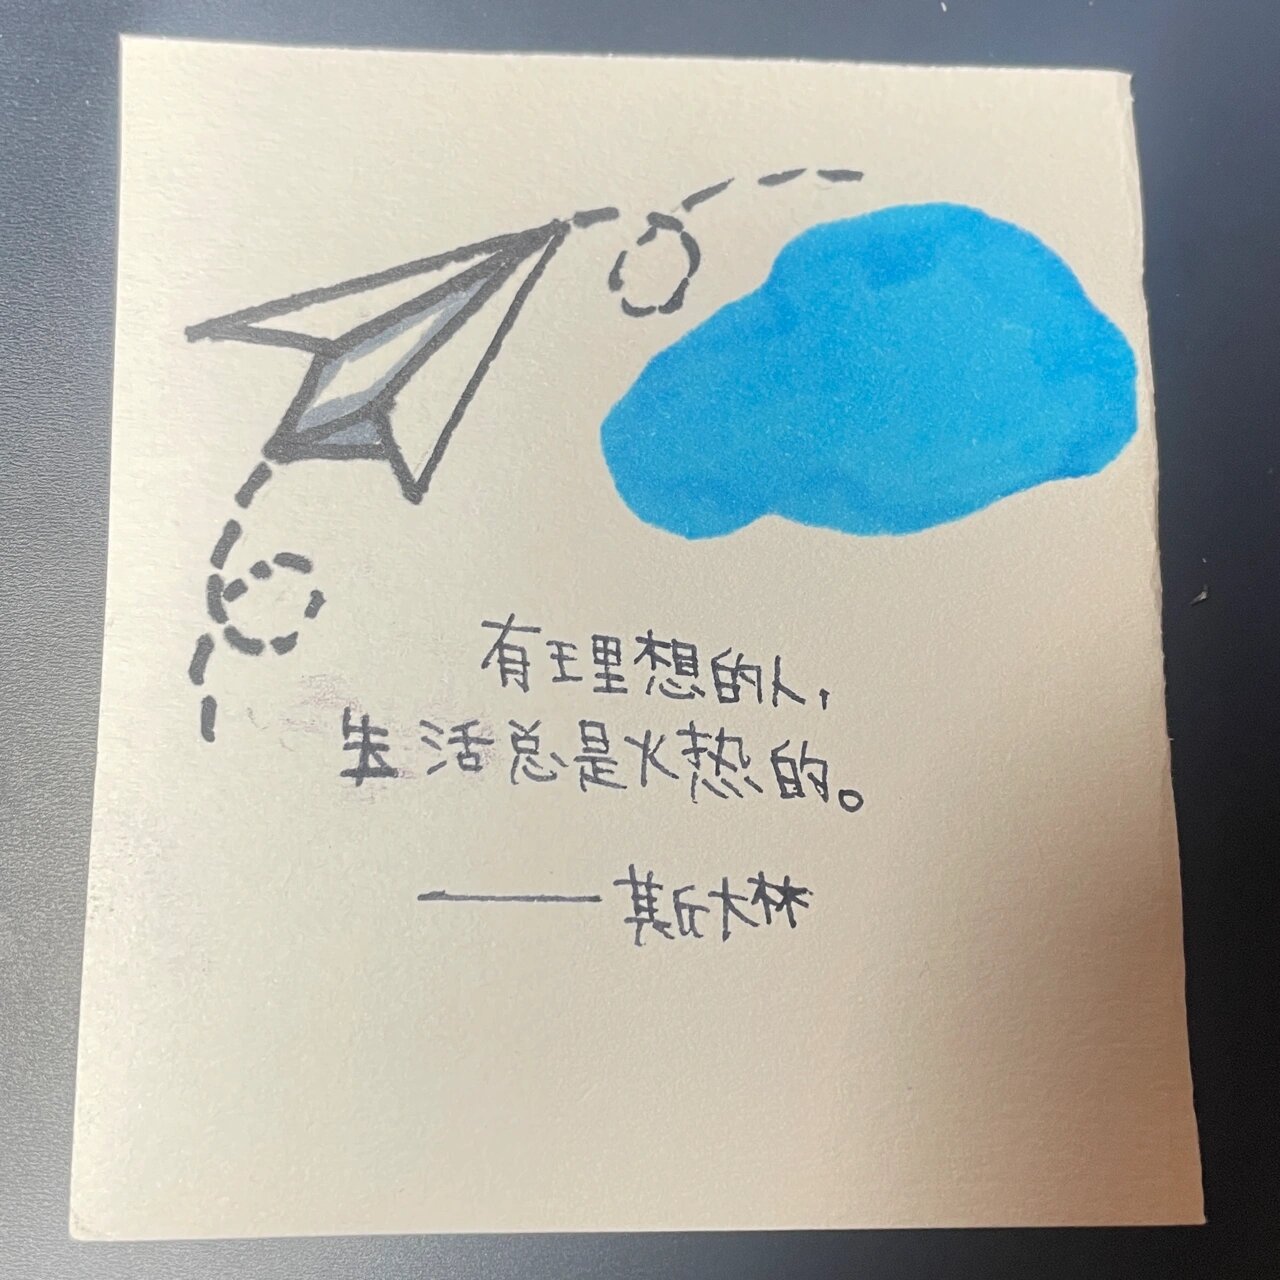 有理想的人,
生活总是火热的。
——斯大林